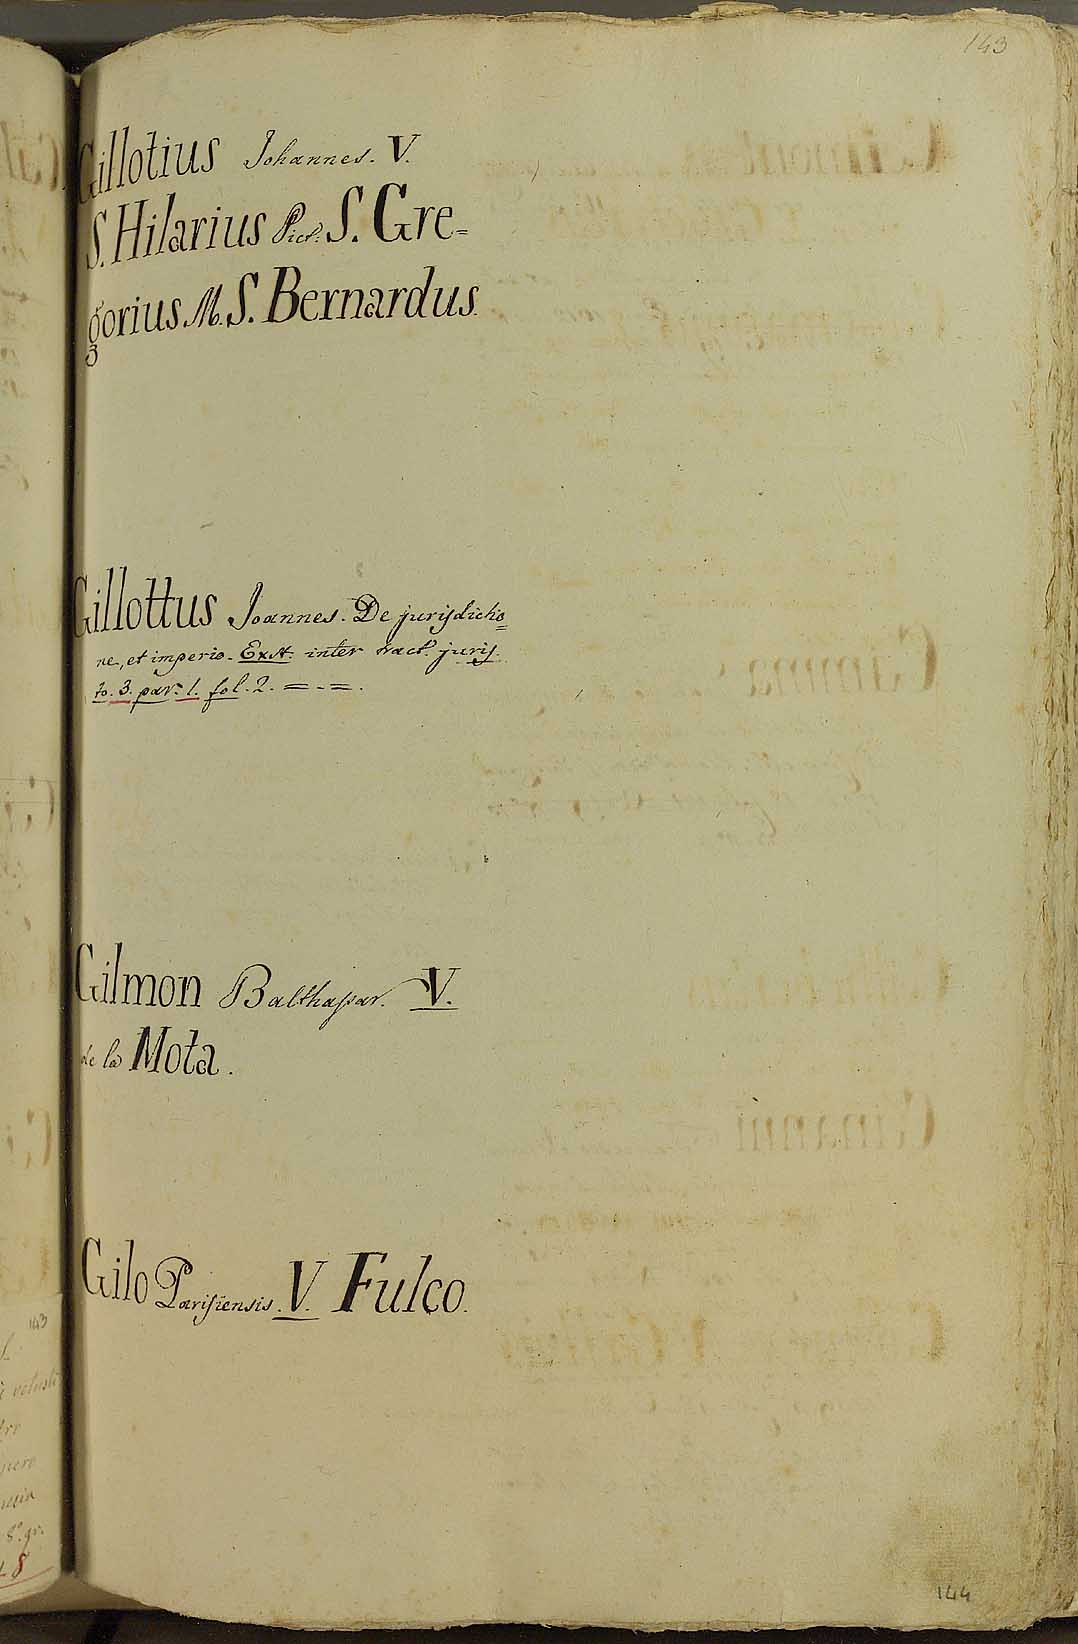 143
Gillotius Johannes. V.
S. Hilarius Pict. S. Gre=
gorius M. S. Bernardus.
Gillottus Joannes. De jurisdictio=
ne, et imperio. Exst. inter tract. juris.
to. 3. par. 1. fol. 2. = . = .
Gilmon Balthassar. V.
de la Mota.
Gilo Parisiensis. V. Fulco.
143
8.º gr.
8
144